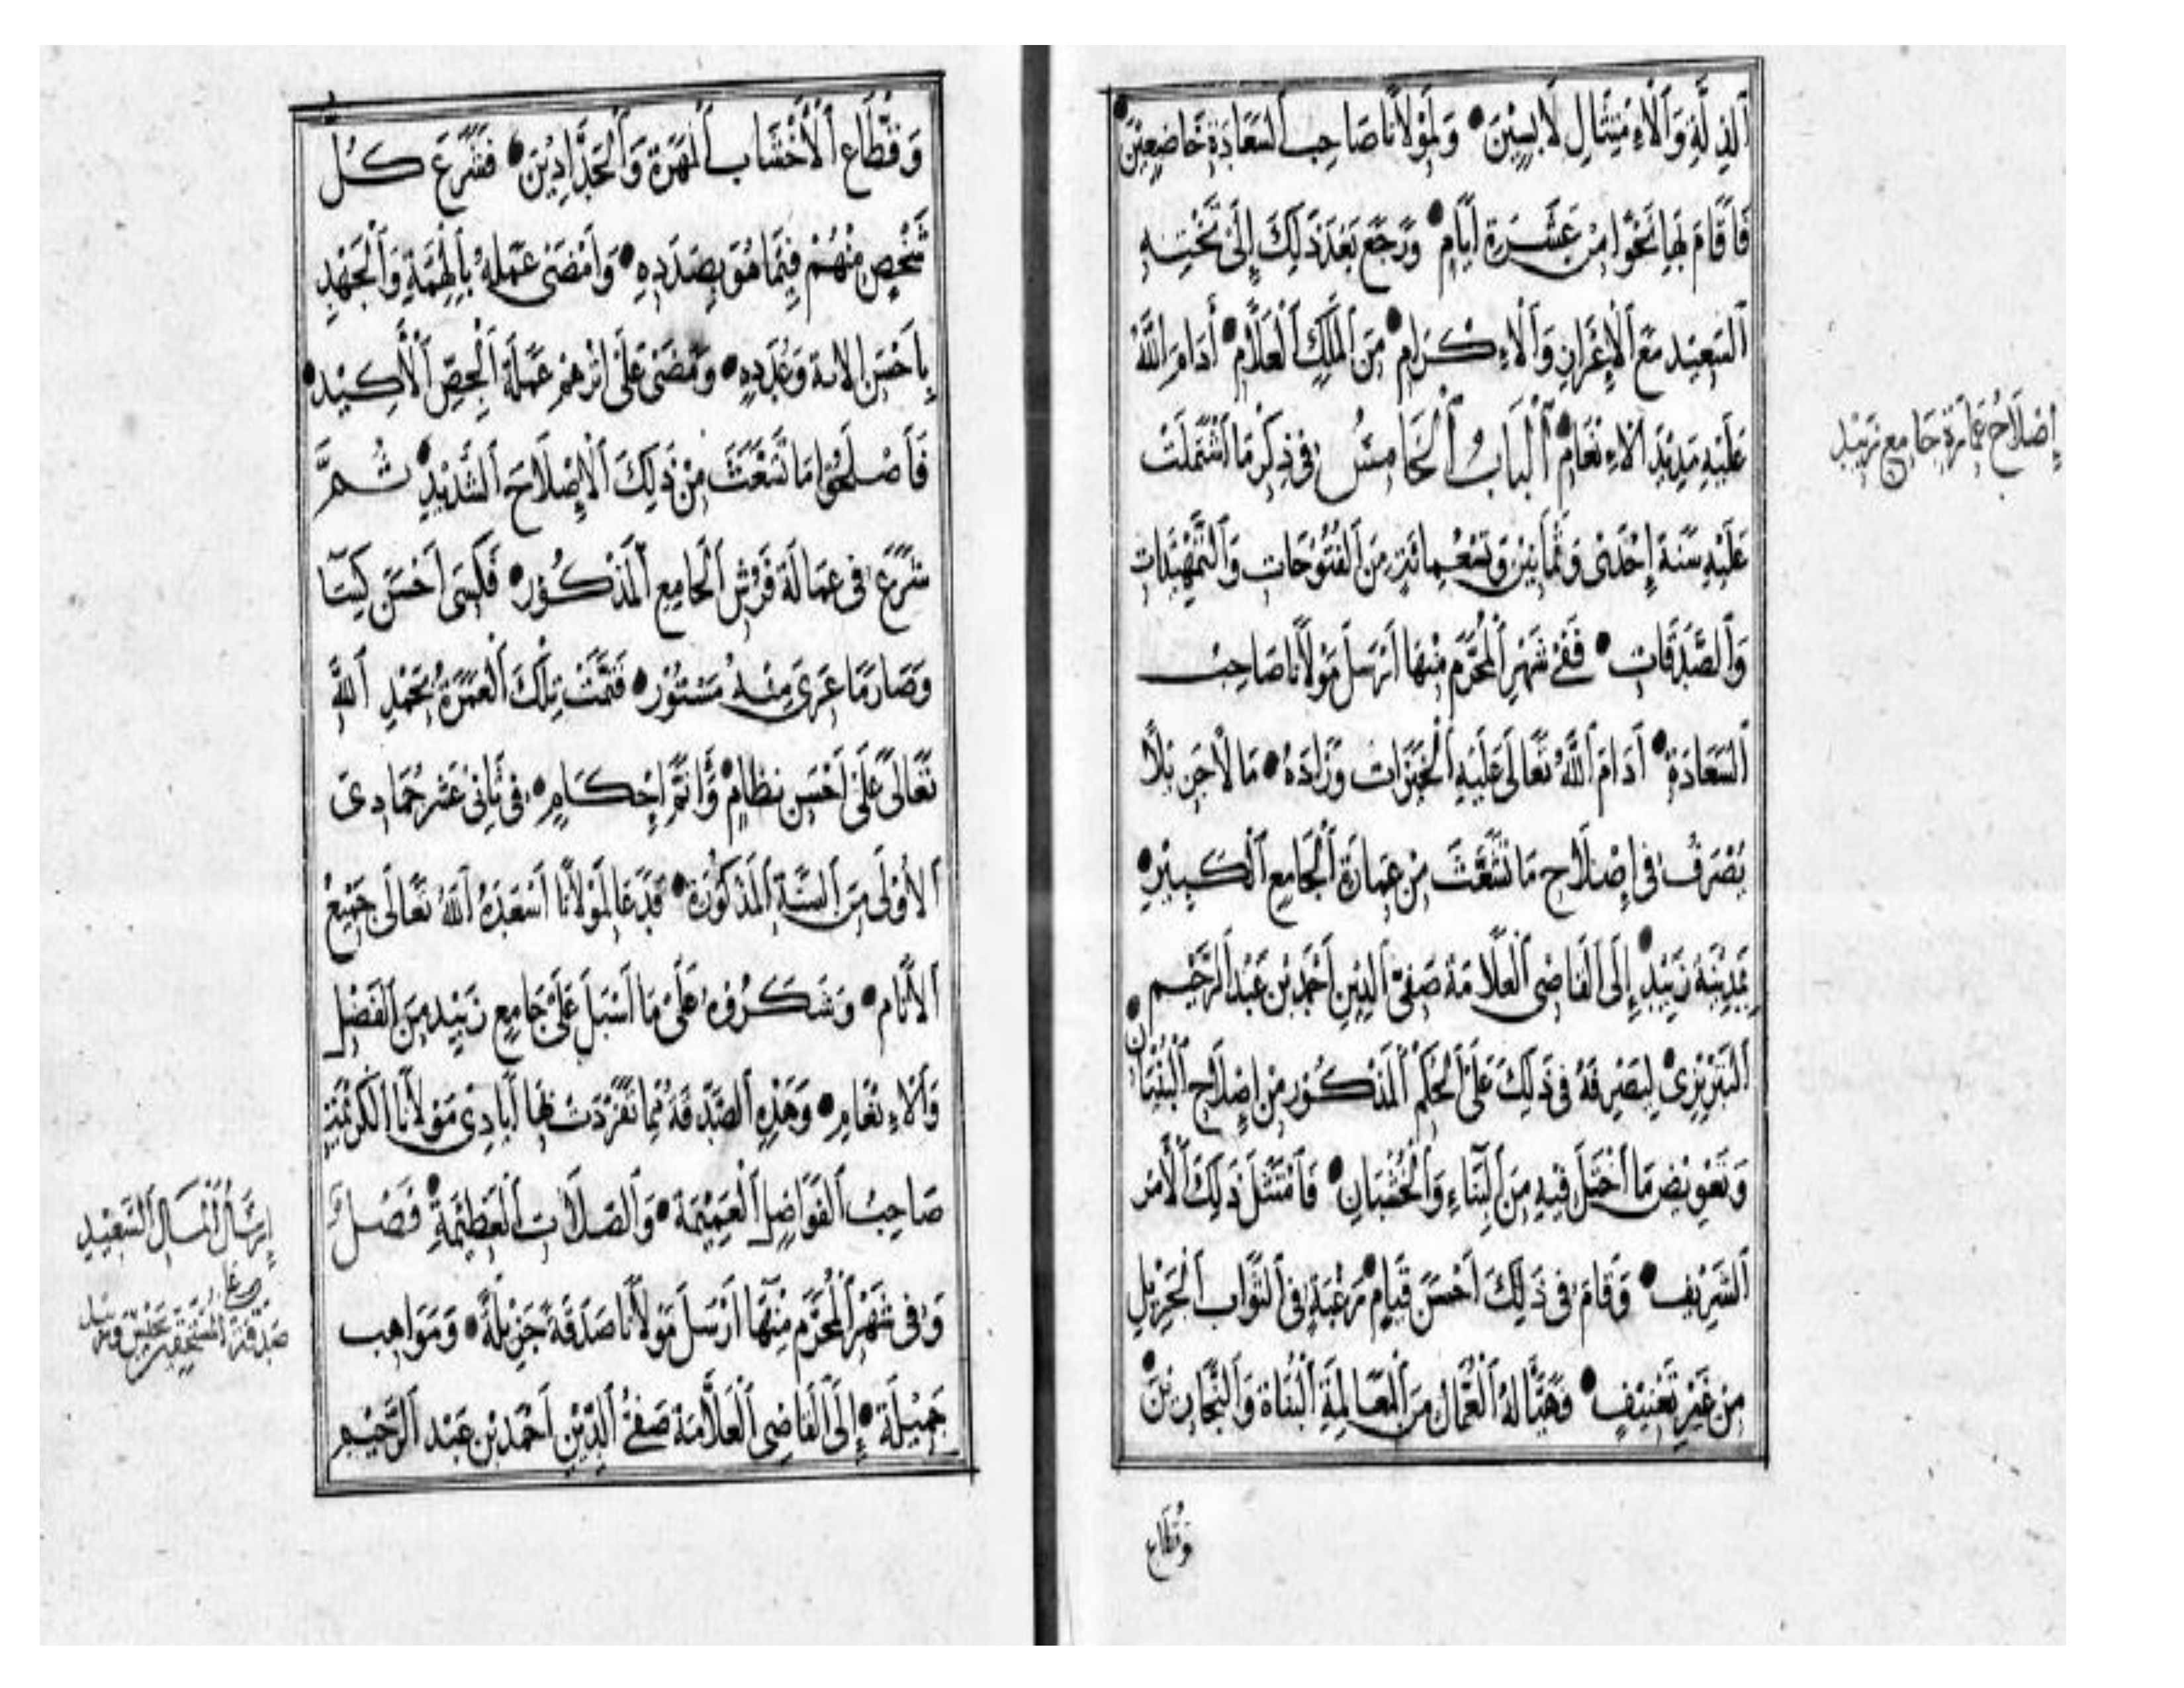 ٱلذِّلَّةِ وَٱلْاِمْتِثَالِ لَابِسِيْنَ • وَلِمَوْلَانَا صَاحِبِ ٱلسَّعَادَةِ خَاضِعِيْنَ •
فَاَقَامَ بِهَا نَحْوًا مِنْ عَشَرَةِ اَيَّامٍ • وَرَجَعَ بَعْدَ ذٰلِكَ اِلَى تَخْتِهِ
ٱلسَّعِيْدِ مَعَ ٱلْاِعْزَازِ وَٱلْاِكْرَامِ • مِنَ ٱلْمَلِكِ ٱلْعَلَّامِ • أَدَامَ اللّٰهُ
عَلَيْهِ مَدِيْدَ ٱلْاِنْعَامِ • ٱلْبَابُ ٱلْخَامِسُ فِى ذِكْرِ مَا ٱشْتَمَلَتْ
عَلَيْهِ سَنَةُ إِحْدَىْ وَثَمَانِيْنَ وَتِسْعِمِائَةٍ مِنَ ٱلْفُتُوْحَاتِ وَٱلتَّمْهِيْدَاتِ
وَٱلصَّدَقَاتِ • فَفِىْ شَهْرِ ٱلْمُحَرَّمِ مِنْهَا اَرْسَلَ مَوْلَانَا صَاحِبُ
ٱلسَّعَادَةِ • اَدَامَ ٱللّٰهُ تَعَالَى عَلَيْهِ ٱلْخَيْرَاتِ وَزَادَهُ • مَالًا جَزِيْلًا
يُصْرَفُ فِى إِصْلَاحِ مَا تَشَعَّثَ مِنْ عِمَارَةِ ٱلْجَامِعِ ٱلْكَبِيْرِ •
بِمَدِيْنَةِ زَبِيْدٍ • إِلَى ٱلْقَاضِى ٱلْعَلَّامَةِ صَفِىِّ ٱلدِّيْنِ اَحْمَدَ بْنِ عَبْدِ ٱلرَّحِيْمِ •
ٱلتَّبْرِيْزِىْ لِيَصْرِفَهُ فِى ذٰلِكَ عَلَى ٱلْحُكْمِ ٱلْمَذْكُوْرِ مِنْ إِصْلَاحِ ٱلْبُنْيَانِ
وَتَعْوِيْضِ مَا ٱخْتَلَّ فِيْهِ مِنَ ٱلْبِنَاءِ وَٱلْخُشْبَانِ • فَٱمْتَثَلَ ذٰلِكَ ٱلْأَمْرَ
ٱلشَّرِيْفَ • وَقَامَ فِى ذٰلِكَ اَحْسَنَ قِيَامٍ رَغْبَةً فِى ٱلثَّوَابِ ٱلْجَزِيْلِ
مِنْ غَيْرِ تَعْنِيْفٍ • فَهَيَّأَ لَهُ ٱلْعُمَّالَ مِنَ ٱلْمَعَالِمَةِ ٱلْبُنَاةِ وَٱلنَّجَّارِيْنَ •
وَقُطَّاعِ
إِصْلَاحُ عِمَارَةِ جَامِعِ زَبِيْد
وَقُطَّاعِ ٱلْأَخْشَابِ ٱلْمَهَرَةِ وَٱلْحَدَّادِيْنَ • فَشَرَعَ كُلُّ
شَخْصٍ مِنْهُمْ فِيْمَا هُوَ بِصَدَدِهِ • وَاَمْضَى عَمَلَهُ بِالْهِمَّةِ وَٱلْجَهْدِ
بِاَحْسَنِ اٰلَاتِهِ وَعُدَدِهِ • وَمَضَىْ عَلَى اَثَرِهِمْ عَمَلَةُ ٱلْجِصِّ ٱلْأَكِيْدِ •
فَاَصْلَحُوْا مَا تَشَعَّثَ مِنْ ذٰلِكَ ٱلْإِصْلَاحَ ٱلشَّدِيْدَ • ثُمَّ
شَرَعَ فِى عَمَالَةِ فَرْشِ ٱلْجَامِعِ ٱلْمَذْكُوْرِ • فَكُسِىَ اَحْسَنَ
وَصَارَ مَا عَرِىَ مِنْهُ مَسْتُوْرٌ • فَتَمَّتْ تِلْكَ ٱلْعِمَرَةُ بِحَمْدِ ٱللّٰهِ
تَعَالَى عَلَى اَحْسَنِ نِظَامٍ • وَّاَتَمِّ اِحْكَامٍ • فِى ثَانِىْ عَشَرَ جُمَادِىَ
ٱلْأُوْلَى مِنَ ٱلسَّنَةِ ٱلْمَذْكُوْرَةِ • فَدَعَا لِمَوْلَانَا اَسْعَدَهُ ٱللّٰهُ تَعَالَى جَمِيْعُ
ٱلْأَنَامِ • وَشَكَرُوْهُ عَلَىْ مَا اَسْبَلَ عَلَىْ جَامِعِ زَبِيْدٍ مِنَ ٱلْفَضْلِ
وَٱلْاِنْعَامِ • وَهٰذِهِ ٱلصَّدَقَةُ مِمَّا تَفَرَّدَتْ بِهَا اَيَادِى مَوْلَانَا ٱلْكَرِيْمَةِ
صَاحِبِ ٱلْفَوَاضِلِ ٱلْعَمِيْمَةِ • وَٱلصِّلَاتِ ٱلْعَظِيْمَةِ • فَصْلٌ
وَفِى شَهْرِ ٱلْمُحَرَّمِ مِنْهَا اَرْسَلَ مَوْلَانَا صَدَقَةً جَزِيْلَةً • وَمَوَاهِبَ
جَمِيْلَةً • إِلَى ٱلْقَاضِى ٱلْعَلَّامَةِ صَفِىِّ ٱلدِّيْنِ اَحْمَدَ بْنِ عَبْدِ ٱلرَّحِيْمِ